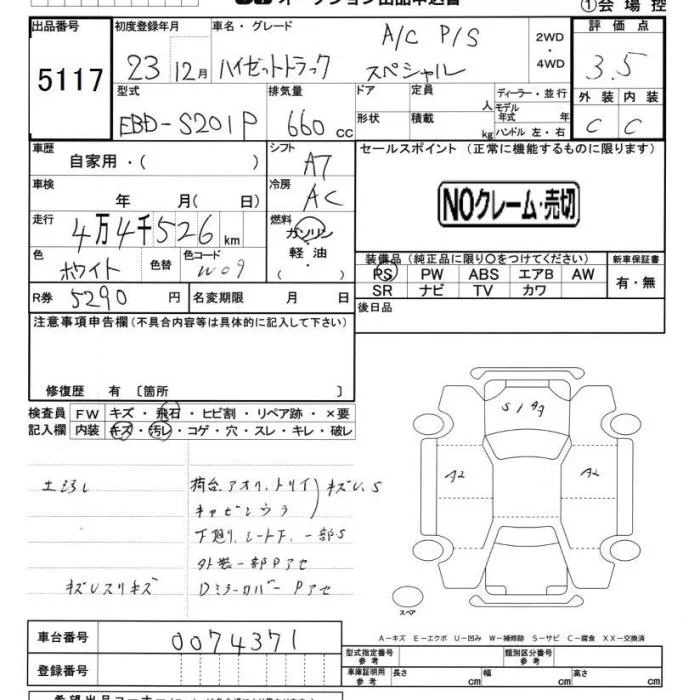 オークション出品申込書
①会場控
出品番号 初度登録年月 車名・グレード 評価点
5117 23 12月 ハイゼットトラック A/C P/S スペシャル 2WD・4WD 3.5
型式 排気量 ドア 定員 人 ディーラー・並行 外装 内装
モデル年式 年
EBD-S201P 660cc 形状 積載 kg ハンドル 左・右 C C
車歴 シフト セールスポイント (正常に機能するものに限ります)
自家用・( ) A7
車検 冷房 NOクレーム・売切
年 月( 日) AC
走行 燃料
4万4千526km ガソリン・軽油・( )
色 色替 色コード 装備品(純正品に限り○をつけてください) 新車保証書
ホワイト W09 PS PW ABS エアB AW 有・無
R券 5290円 名変期限 月 日 SR ナビ TV カワ
後日品
注意事項申告欄(不具合内容等は具体的に記入して下さい)
修復歴 有 〔箇所 〕
検査員 FW キズ・飛石・ヒビ割・リペア跡・×要
記入欄 内装 キズ・汚レ・コゲ・穴・スレ・キレ・破レ
S1 A2 A2
荷台、アオリ、トリイ キズU、S
下廻り、シート下、一部S
外装一部Pアセ
キズUスリキズ DミラーカバーPアセ
スペア
A-キズ E-エクボ U-凹み W-補修跡 S-サビ C-腐食 XX-交換済
車台番号 0074371
型式指定番号 参考 類別区分番号 参考
登録番号 車庫証明用 参考 長さ cm 幅 cm 高さ cm
希望出品コーナー